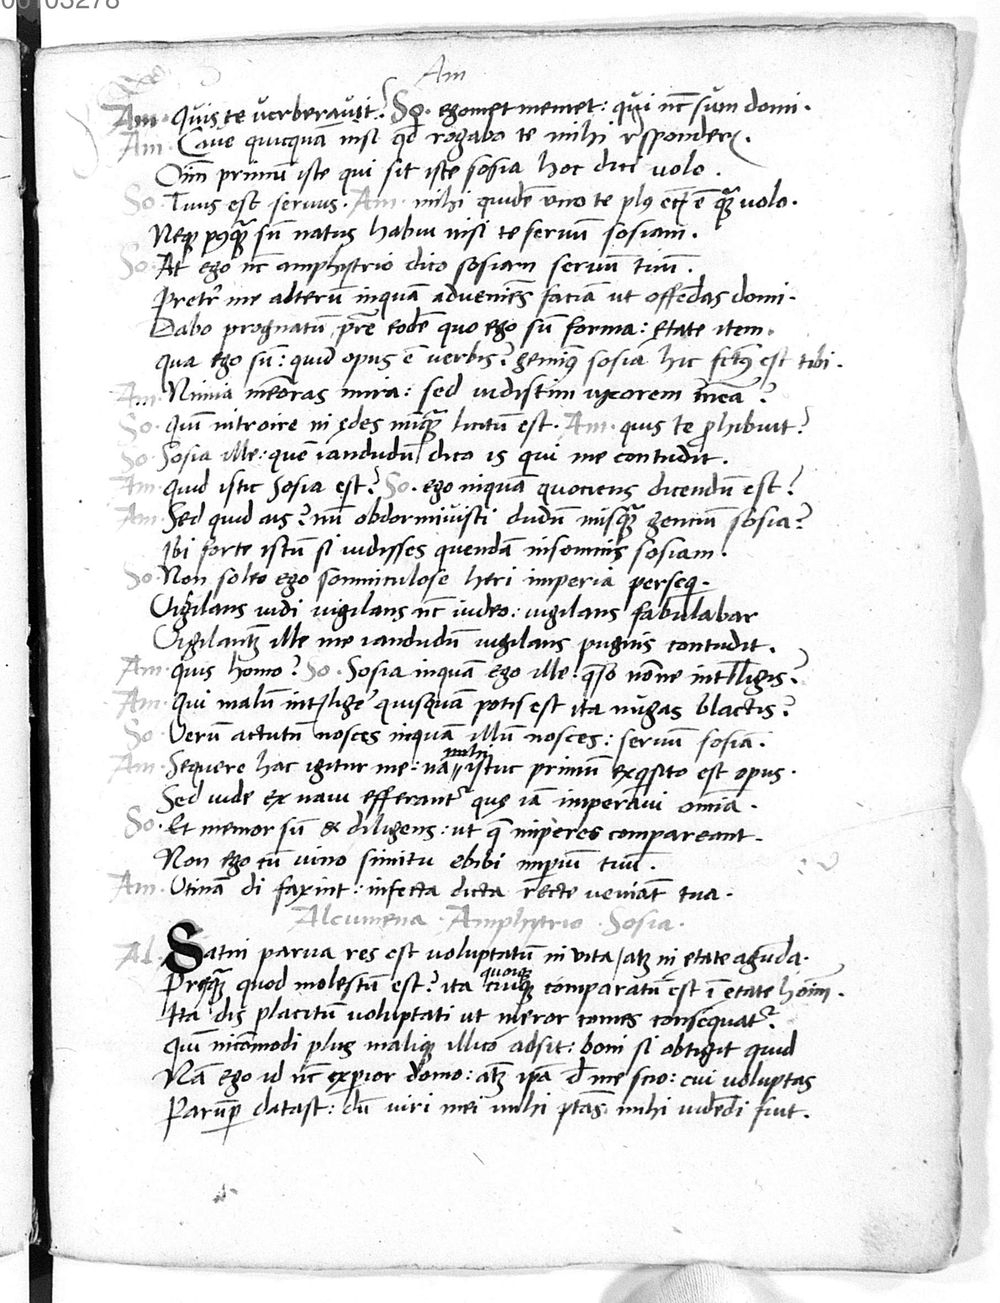 00103278
Am
Am. Quis te verberavit? So. egomet memet: qui nc sum domi.
Am. Cave quicquã nisi qd rogabo te mihi responder.
Oim primũ iste qui sit iste sosia hoc dici volo.
So. Tuus est servus. Am. mihi quidẽ uno te plus etiã ẽ quã volo.
Neque postquã sũ natus habui nisi te servũ sosiam.
So. At ego nc amphytrio dico sosiam servũ tuũ.
Pretr me alterũ inquã adveniẽs faciã ut offẽdas domi.
Davo prognatũ pr̃e eodẽ quo ego sũ forma: etate item.
qua ego sũ: quid opus ẽ verbis? geminus sosia hic fctus est tibi.
Am. Nimia mẽoras mira: sed vidistin uxorem meã?
So. Quĩ introire in edes nũquã licitũ est. Am. quis te prohibuit?
So. Sosia ille: quẽ iandudũ dico is qui me contudit.
Am. quid istic sosia est? So. ego inquã quociens dicendũ est?
Am. Sed quid ais? nũ obdormivisti dudũ nusquã gentiũ sosia?
Ibi forte istũ si vidisses quendã insomnis sosiam.
So. Non soleo ego somniculose heri imperia perseq.
Vigilans vidi vigilans nc video: vigilans fabulabar
Vigilantẽ ille me iandudũ vigilans pugnis contudit.
Am. quis homo? So. Sosia inquã ego ille: qso nõne intelligis?
Am. Qui malũ intelige quisquã potis est ita nugas blactis?
So. Verũ actutũ nosces inquã illũ nosces: servũ sosiã.
Am. Sequere hac igitur me: nã mihi istuc primũ exqisito est opus.
Sed vide ex navi efferantr que iã imperavi omia.
So. Et memor sũ & diligens: ut q̃ imperes compareant.
Non ego cũ vino simitu ebibi imperiũ tuũ.
Am. Utinã di faxint: infecta dicta recte veniãt tua.
Alcumena. Amphytrio. Sosia.
Al. Satin parva res est voluptatũ in vita/atq in etate agunda.
Prequã quod molestũ est? ita cuiq quoiq comparatũ est ĩ etate hoim.
Ita dis placitũ voluptati ut meror comes consequatr.
Quĩ incõmodi plus malique illico adsit: boni si obtigit quid
Nã ego id nc experior domo: atq ipã d me scio: cui voluptas
Parũper datast: dũ viri mei mihi ptãs mihi videdi fuit.